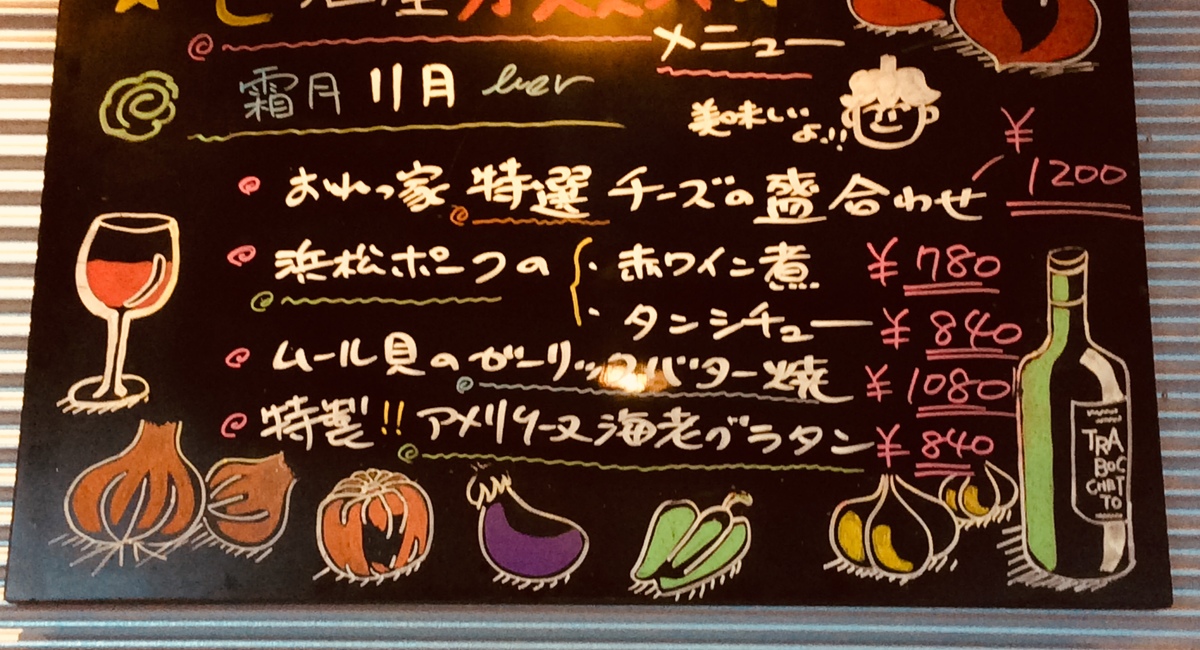 メニュー
霜月 11月 ver
美味しい
よ!!
おれっ家 特選 チーズの盛合わせ ¥1200
浜松ポークの ・赤ワイン煮 ¥780
・タンシチュー ¥840
ムール貝のガーリックバター焼 ¥1080
特製!! アメリケーヌ海老グラタン ¥840
TRA
BOC
CHET
TO